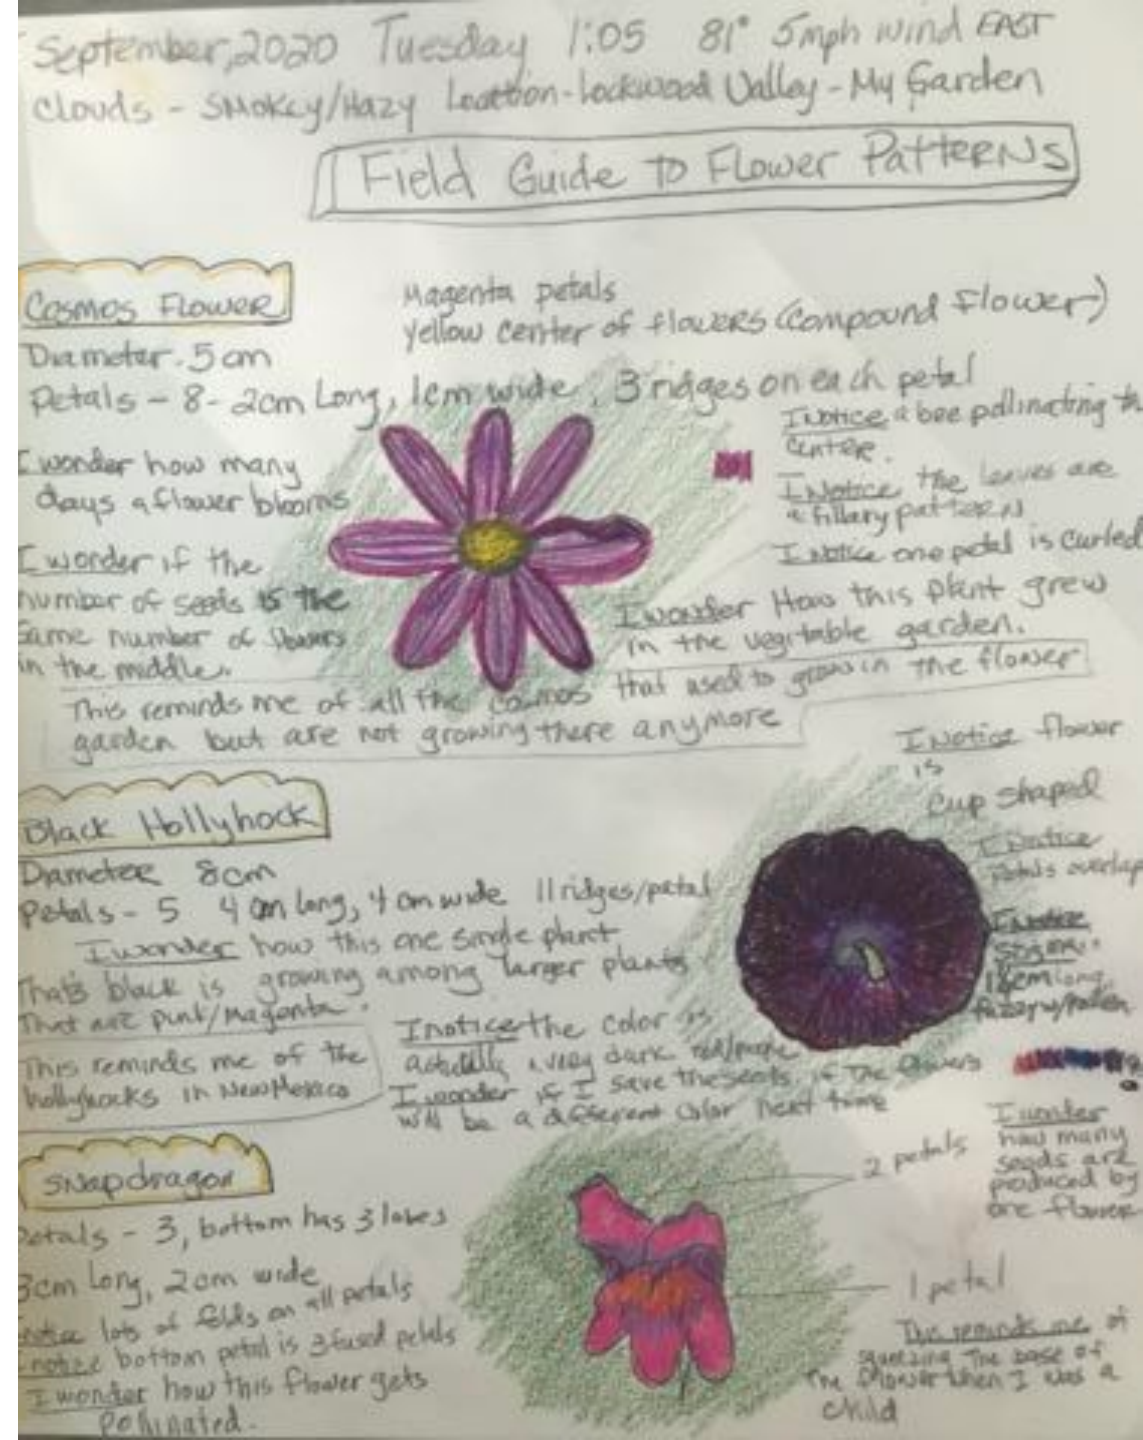 September, 2020 Tuesday 1:05 81° 5mph wind EAST
Clouds - SMOKEY/HAZY Location-Lockwood Valley - My Garden
Field Guide TO Flower PATTERNS
Cosmos Flower
Magenta petals
Yellow center of flowers (Compound Flower)
Diameter - 5 cm
Petals - 8 - 2cm Long, 1cm wide, 3 ridges on each petal
I wonder how many
days a flower blooms
I wonder if the
number of seeds is the
same number of flowers
in the middle.
I Notice a bee pollinating the
center.
I Notice the leaves are
a fillary pattern
I Notice one petal is curled
I wonder How this plant grew
in the vegitable garden.
This reminds me of all the cosmos that used to grow in the flower
garden but are not growing there anymore
Black Hollyhock
Diameter 8cm
Petals - 5 4 cm long, 4 cm wide 11 ridges/petal
I wonder how this one single plant
That's black is growing among larger plants
That are pink/magenta.
This reminds me of the
hollyhocks in New Mexico
I notice the color is
actually a very dark red/purple
I wonder if I save the seeds if the flowers
will be a different color next time
I Notice flower
is
Cup shaped
I Notice
Petals overlap
I Notice
long,
fuzzy w/pollen
I wonder
how many
seeds are
produced by
one flower
Snapdragon
Petals - 3, bottom has 3 lobes
3cm Long, 2cm wide
I notice lots of folds on all petals
I notice bottom petal is 3 fused petals
I wonder how this flower gets
Pollinated.
2 petals
1 petal
This reminds me of
squeezing the base of
the flower when I was a
child